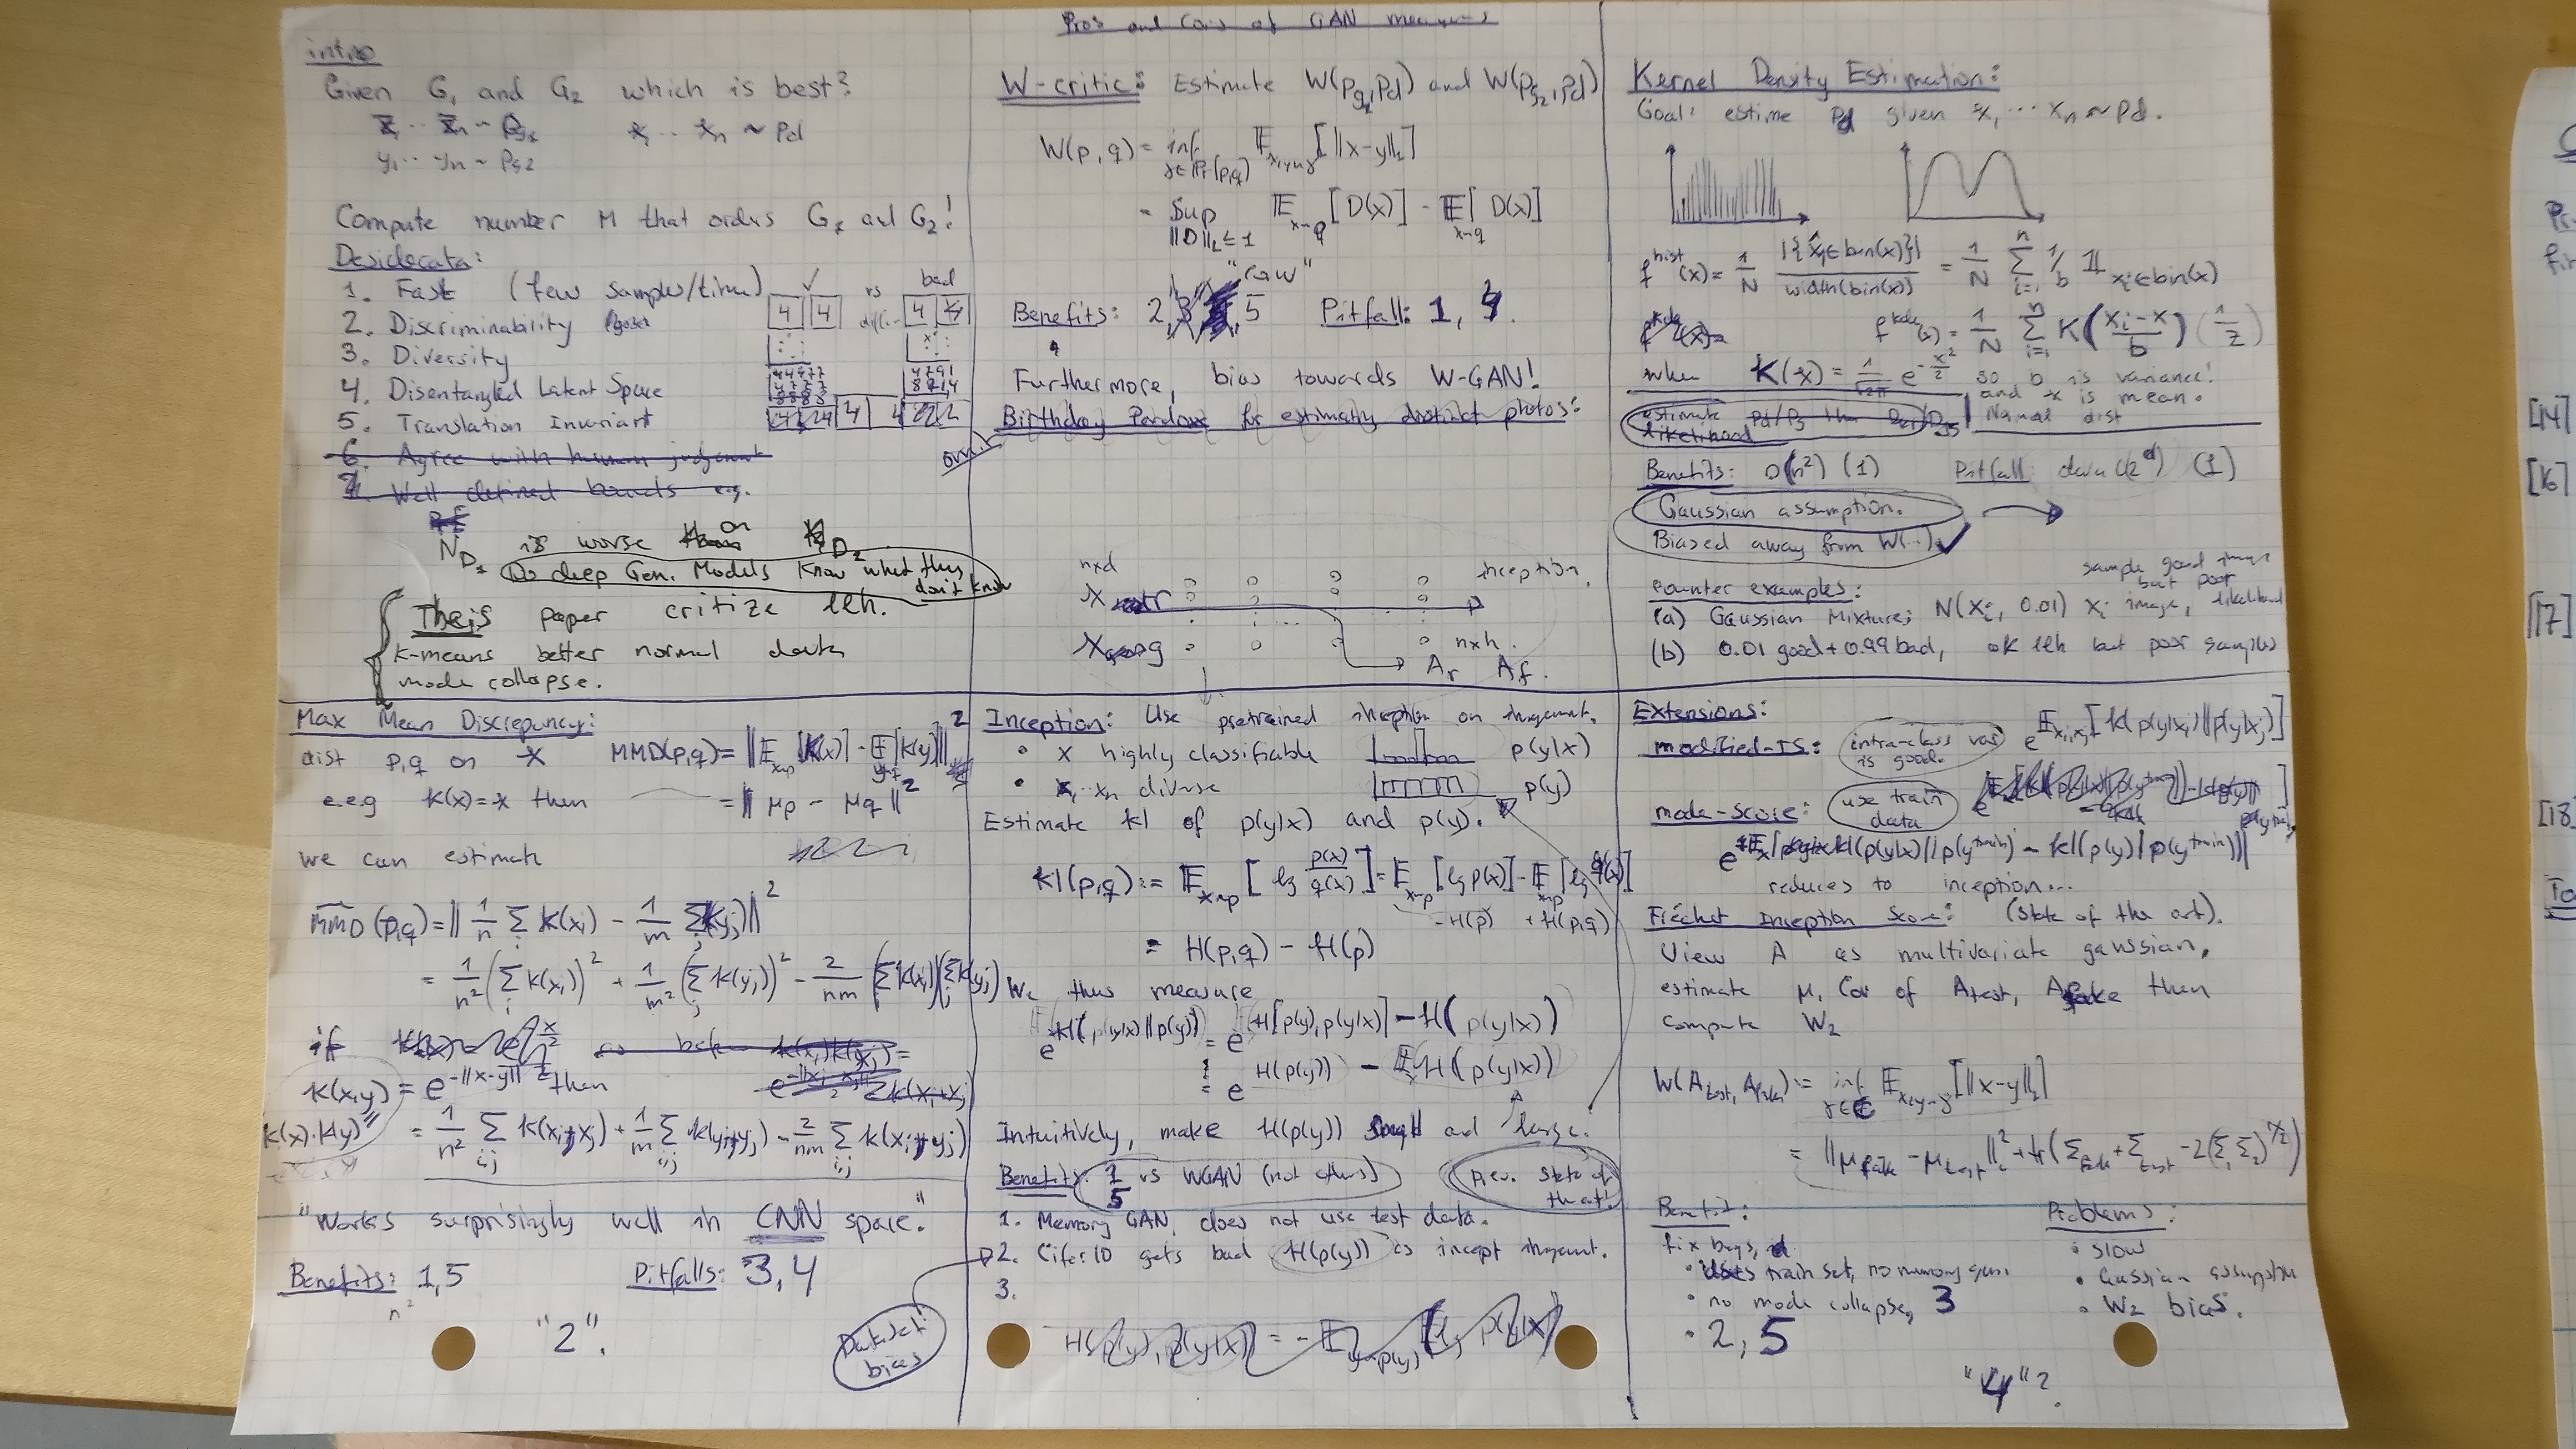 Pros and Cons of GAN measures
intro
Given G₁ and G₂ which is best?
y₁ ... yₙ ~ Pg₂
Compute number M that orders Gₓ and G₂!
Desiderata:
1. Fast (few sample/time)
2. Discriminability
3. Diversity
4. Disentangled Latent Space
5. Translation Invariant
6. Agree with human judgement
7. Well defined bounds e.g.
✓ vs bad
is worse on
Do deep Gen. Models know what they don't know
Theis paper critize llh.
k-means better normal data
mode collapse.
W-critic: Estimate W(pg₁,pd) and W(pg₂,pd)
W(p,q) = inf E [||x-y||₂]
= sup E [D(x)] - E [D(x)]
||D||L ≤ 1 x~p x~q
"raw"
Benefits: 2, 5 Pitfall: 1,
Furthermore, bias towards W-GAN!
Birthday Paradox for estimating distinct photos:
nxd inception
nxh.
Ar Af.
Kernel Density Estimation:
Goal: estime pd given x₁ ... xₙ ~ pd.
f^hist(x) = 1/N |{xᵢ∈bin(x)}| / width(bin(x)) = 1/N Σ 1/b 𝟙 xᵢ∈bin(x)
f^kde(x) = 1/N Σ K((xᵢ-x)/b) (1/2)
when K(x) = 1/√2π e^(-x²/2) so b is variance!
and x is mean.
Normal dist
estimate
likelihood
Benefits: O(n²) (1) Pitfall: data (2^d) (1)
Gaussian assumption.
Biased away from W(...)
counter examples:
sample good image but poor likelihood
(a) Gaussian Mixture; N(xᵢ, 0.01) xᵢ image,
(b) 0.01 good + 0.99 bad, ok llh but poor samples
Max Mean Discrepancy:
dist p,q on x MMD(p,q) = ||E [K(x)] - E [K(y)]||²
e.g k(x)=x then = ||μp - μq||²
we can estimate
MMD(p,q) = || 1/n Σ k(xᵢ) - 1/m Σ k(yⱼ)||²
= 1/n² (Σ k(xᵢ))² + 1/m² (Σ k(yⱼ))² - 2/nm (Σ k(xᵢ))(Σ k(yⱼ))
if
k(x,y) = e^(-||x-y||²) then
k(x)·k(y)"
= 1/n² Σ k(xᵢ,xⱼ) + 1/m Σ k(yᵢ,yⱼ) - 2/nm Σ k(xᵢ,yⱼ)
"Works surprisingly well in CNN space."
Benefits: 1,5 Pitfalls: 3,4
n²
"2".
Dataset bias
Inception: Use pretrained inception on imagenet.
• x highly classifiable p(y|x)
• x₁..xₙ diverse p(y)
Estimate kl of p(y|x) and p(y).
kl(p,q) := E [lg p(x)/q(x)] = E [lg p(x)] - E [lg q(x)]
-H(p) + H(p,q)
= H(p,q) - H(p)
We thus measure
e^kl(p(y|x)||p(y)) = e^H[p(y),p(y|x)] - H(p(y|x))
= e^H(p(y)) - E H(p(y|x))
Intuitively, make H(p(y)) and large.
Benefit: 1 5 vs WGAN (not others)
prev. state of the art!
1. Memory GAN, does not use test data.
2. Cifar10 gets bad H(p(y)) as incept imagenet.
3.
Extensions:
modified-IS: intra-class var is good. e^E xᵢ,xⱼ [kl(p(y|xᵢ)||p(y|xⱼ)]
mode-score: use train data
reduces to inception...
Fréchet Inception Score: (state of the art).
View A as multivariate gaussian,
estimate μ, Cov of Atest, Afake then
compute W₂
W(Atest, Afake) := inf E [||x-y||₂]
= ||μfake - μtest||² + tr(Σfake + Σtest - 2(Σ₁ Σ₂)^1/2)
Benefit: Problems:
fix bugs,
• slow
• uses train set, no memory gan.
• Gaussian assumption
• no mode collapse, 3
• W₂ bias.
• 2, 5
"4"?
[14]
[16]
[17]
[18]